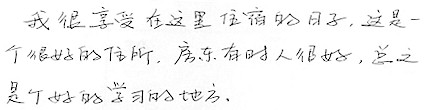 我很享受在这里住宿的日子，这是一
个很好的住所，房东有时人很好，总之
是个好的学习的地方。